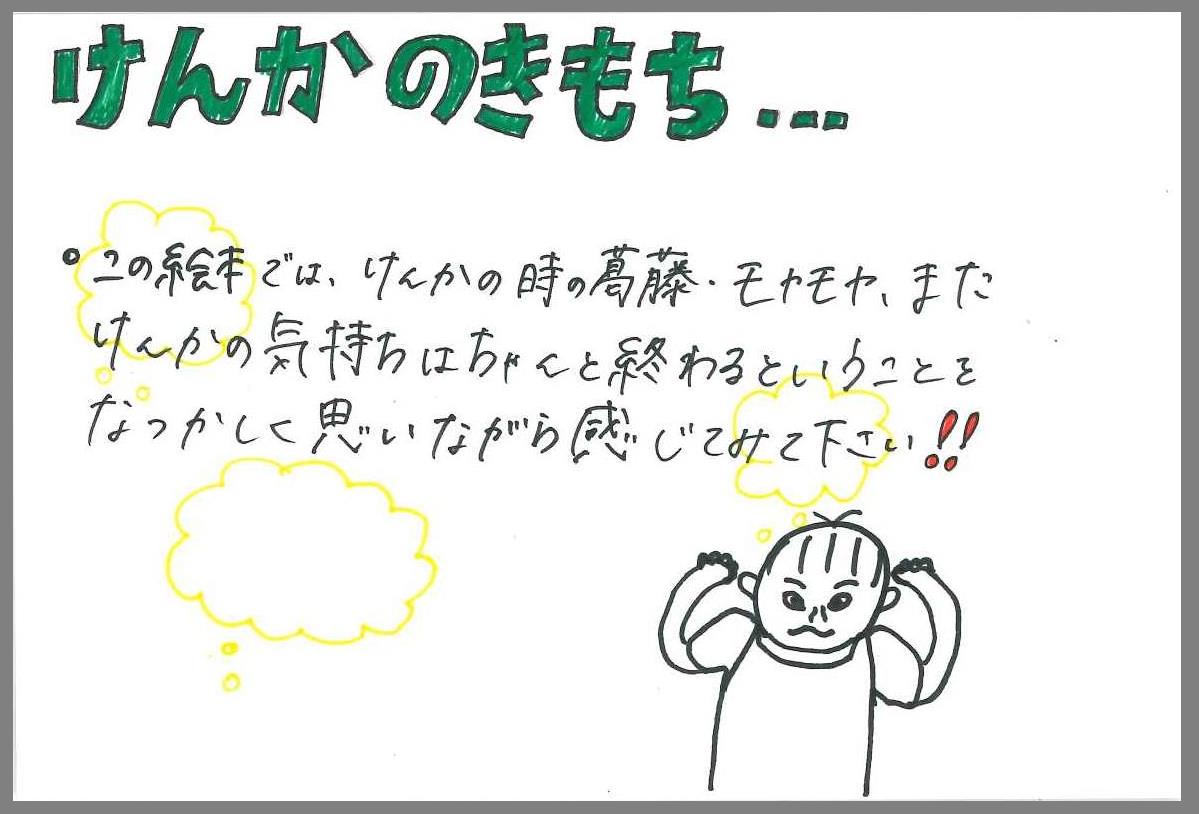 けんかのきもち...
○この絵本では、けんかの時の葛藤・モヤモヤ、また
けんかの気持ちはちゃんと終わるということを
なつかしく思いながら感じてみて下さい!!